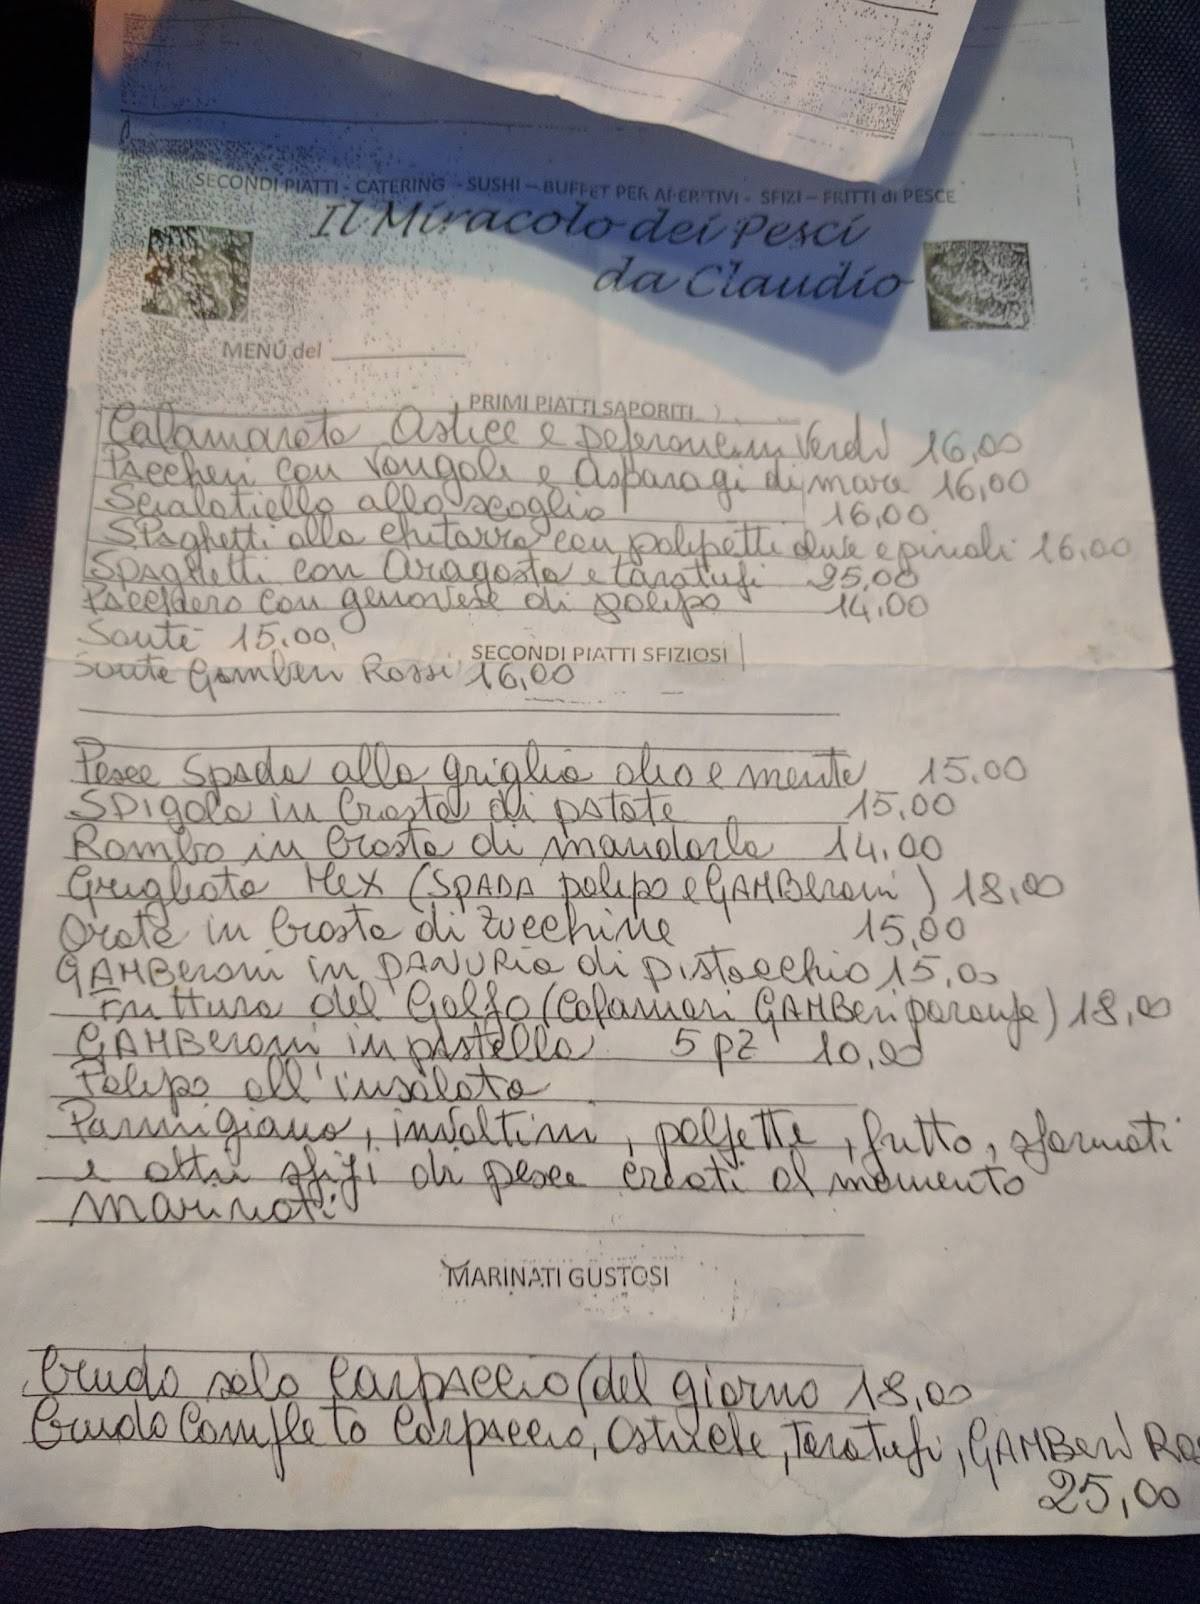 SECONDI PIATTI - CATERING - SUSHI – BUFFET PER APERITIVI - SFIZI – FRITTI di PESCE
Il Miracolo dei Pesci
da Claudio
MENÚ del
PRIMI PIATTI SAPORITI
Calamarata Astice e peperoncini Verdi 16,00
Paccheri con Vongole e Asparagi di mare 16,00
Scialatiello allo scoglio 16,00
Spaghetti alla chitarra con polipetti olive e pinoli 16,00
Spaghetti con Aragosta e taratufi 25,00
Pacchero con genovese di polipo 14,00
Sautè 15,00
SECONDI PIATTI SFIZIOSI
Sautè Gamberi Rossi 16,00
Pesce Spada alla griglia olio e menta 15,00
Spigola in Crosta di patate 15,00
Rombo in Crosta di mandorla 14,00
Grigliata Mex (SPADA polipo e GAMBeroni) 18,00
Orata in Crosta di zucchine 15,00
GAMBeroni in PANURIA di pistacchio 15,00
Frittura del Golfo (Calamari GAMBeri paranza) 18,00
GAMBeroni in pastella 5 pz 10,00
Polipo all'insalata
Parmigiana, involtini, polpette, frutto, sformati
e altri sfizi di pesce creati al momento
marinati
MARINATI GUSTOSI
Crudo solo Carpaccio (del giorno 18,00
Crudo Completo Carpaccio, Ostriche, Taratufi, GAMBeri
25,00